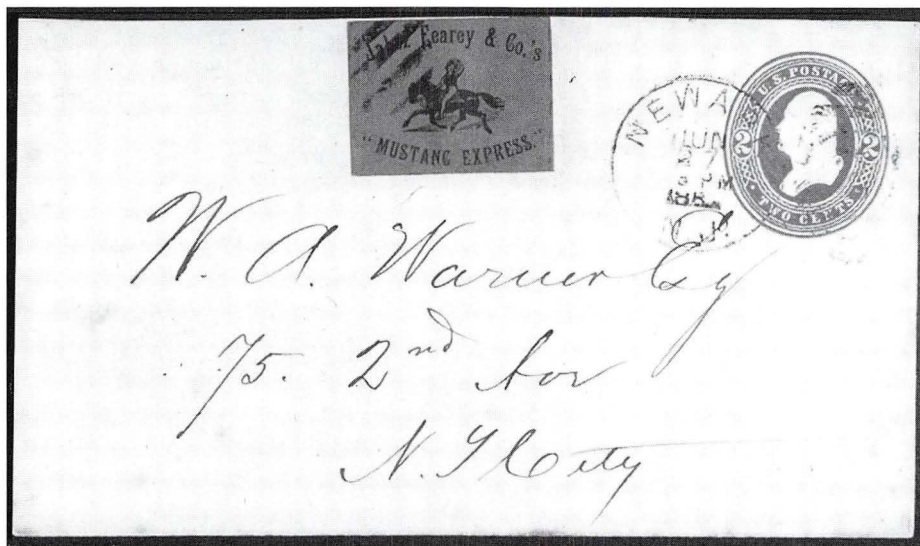 Jabez Fearey & Co.'s
"MUSTANG EXPRESS."
NEWA
JUN
PM
188
U.S. POSTAGE
2 2
TWO CENTS
W A. Warner Esq
75 2nd Av
N. Y City